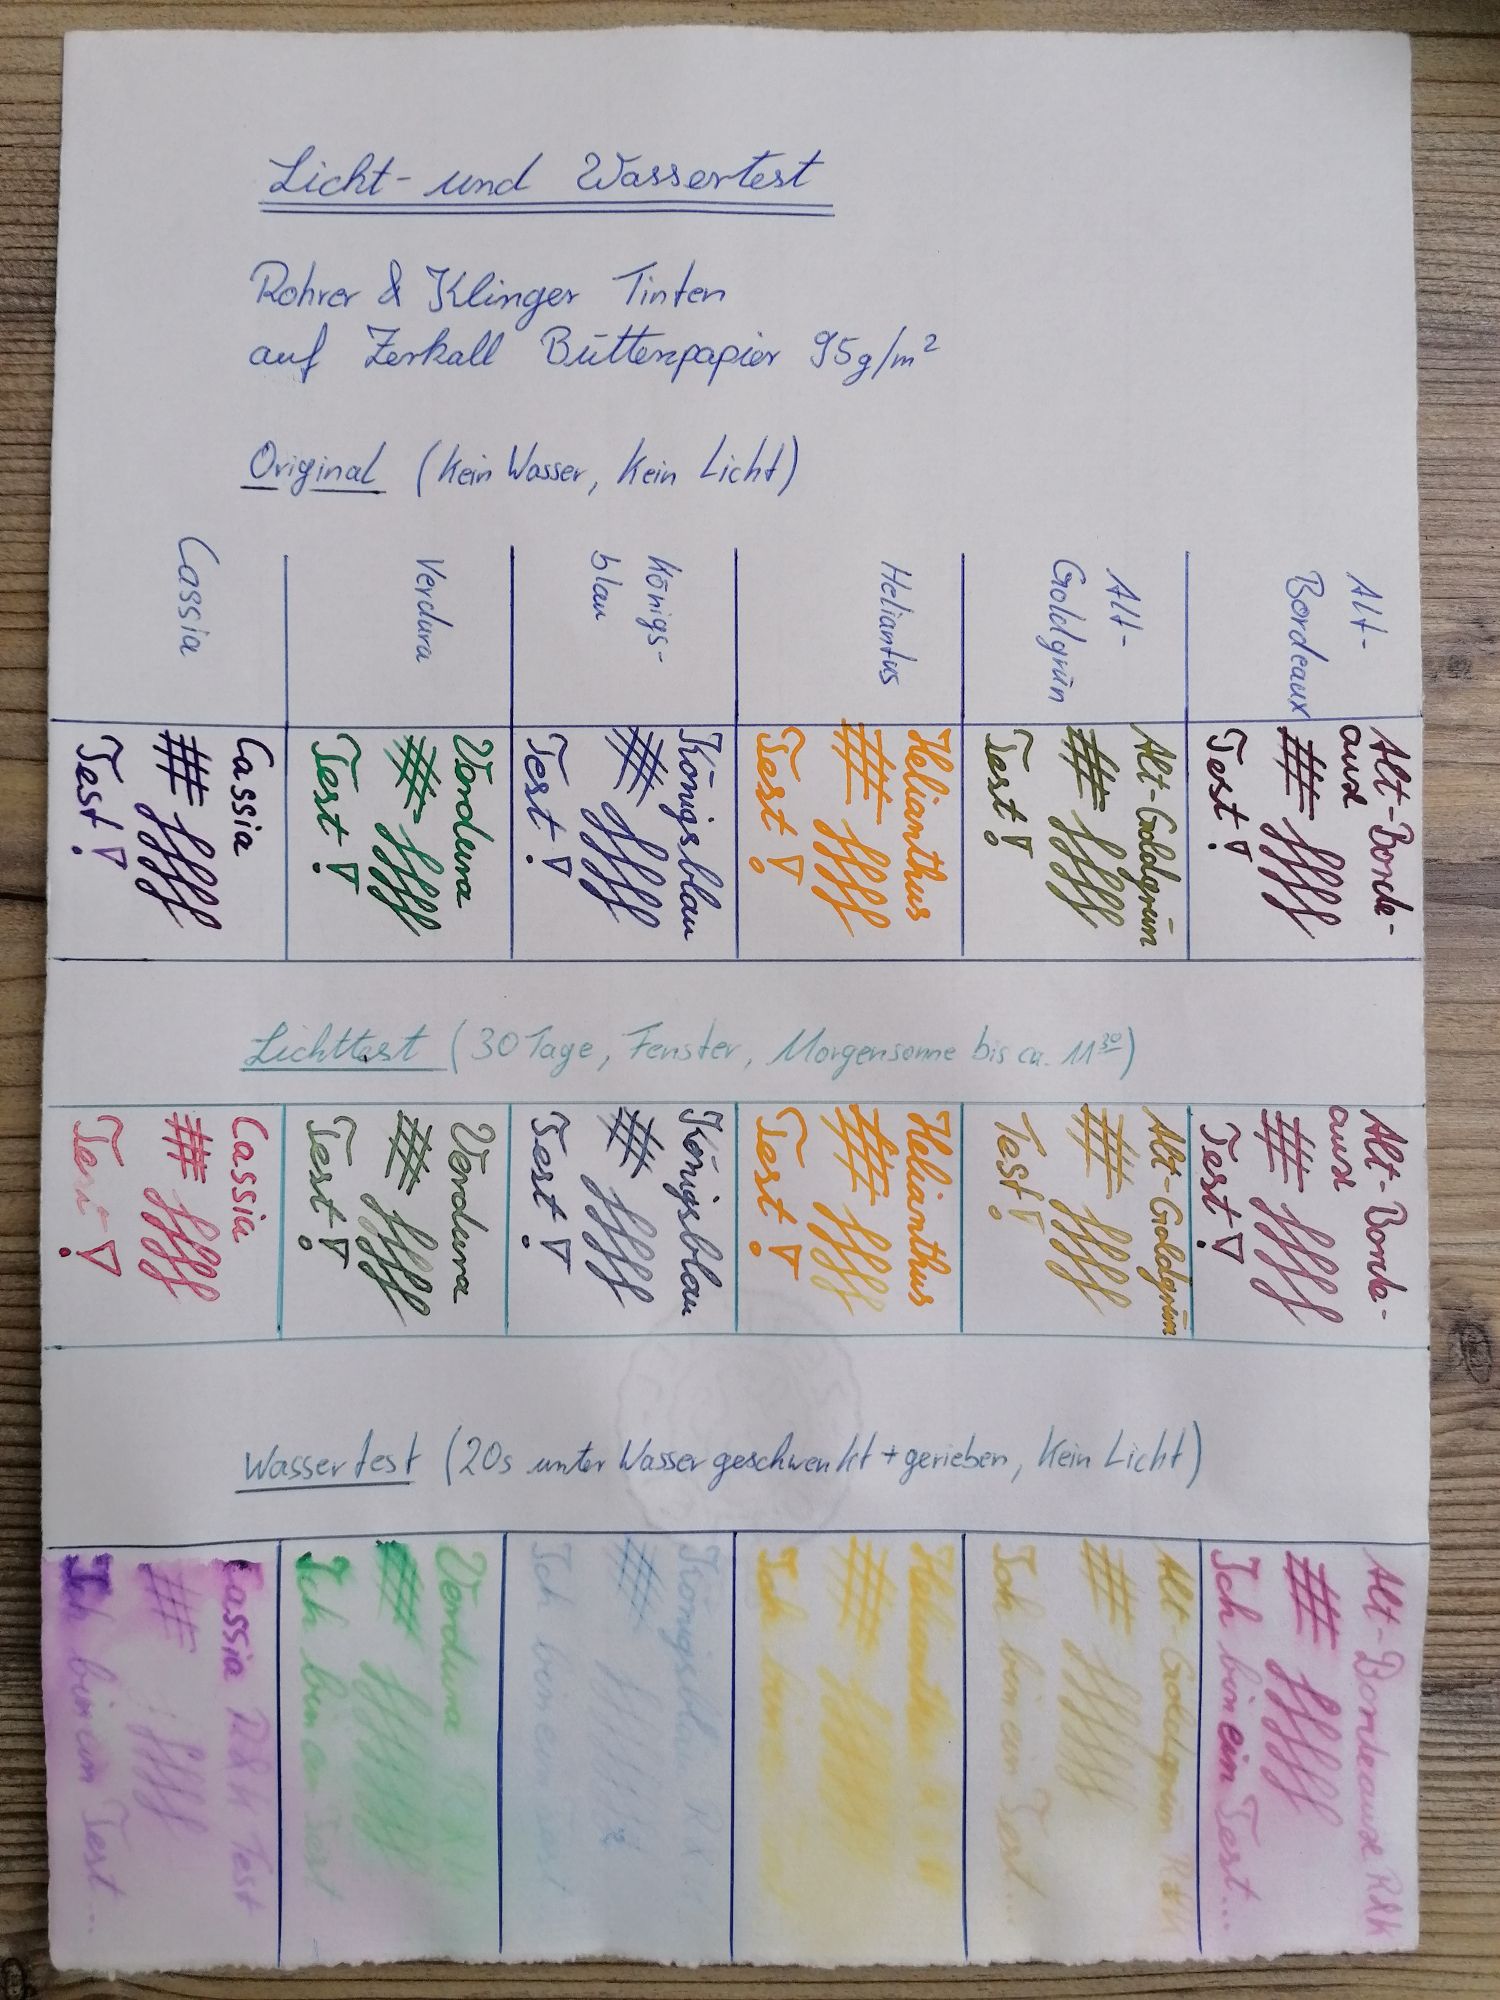 Licht- und Wassertest
Rohrer & Klinger Tinten
auf Zerkall Büttenpapier 95g/m²
Original (Kein Wasser, Kein Licht)
Cassia
Verdura
Königs-
blau
Heliantus
Alt-
Goldgrün
Alt-
Bordeaux
Cassia
Test!
Verdura
Test!
Königsblau
Test!
Helianthus
Test!
Alt-Goldgrün
Test!
Alt-Borde-
aux
Test!
Lichttest (30 Tage, Fenster, Morgensonne bis ca. 11³⁰)
Cassia
Test!
Verdura
Test!
Königsblau
Test!
Helianthus
Test!
Alt-Goldgrün
Test!
Alt-Borde-
aux
Test!
Wassertest (20s unter Wasser geschwenkt + gerieben, Kein Licht)
Cassia R&K Test
Ich bin ein Test...
Verdura R&K
Ich bin ein Test
Königsblau R&K
Ich bin ein Test
Helianthus
Ich bin
Alt-Goldgrün R&K
Ich bin ein Test...
Alt-Bordeaux R&K
Ich bin ein Test...